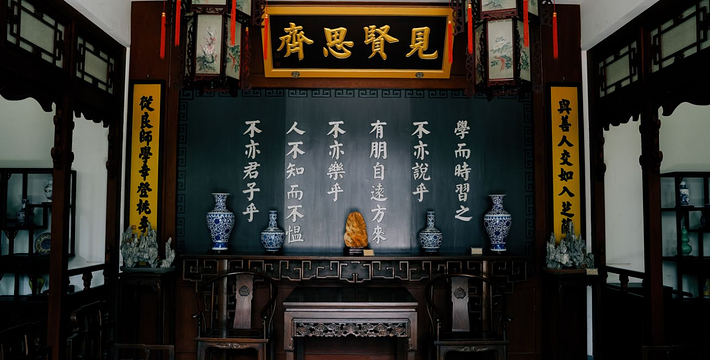 見賢思齊
與善人交如入芝蘭
學而時習之
不亦說乎
有朋自遠方來
不亦樂乎
人不知而不慍
不亦君子乎
從良師學幸登桃